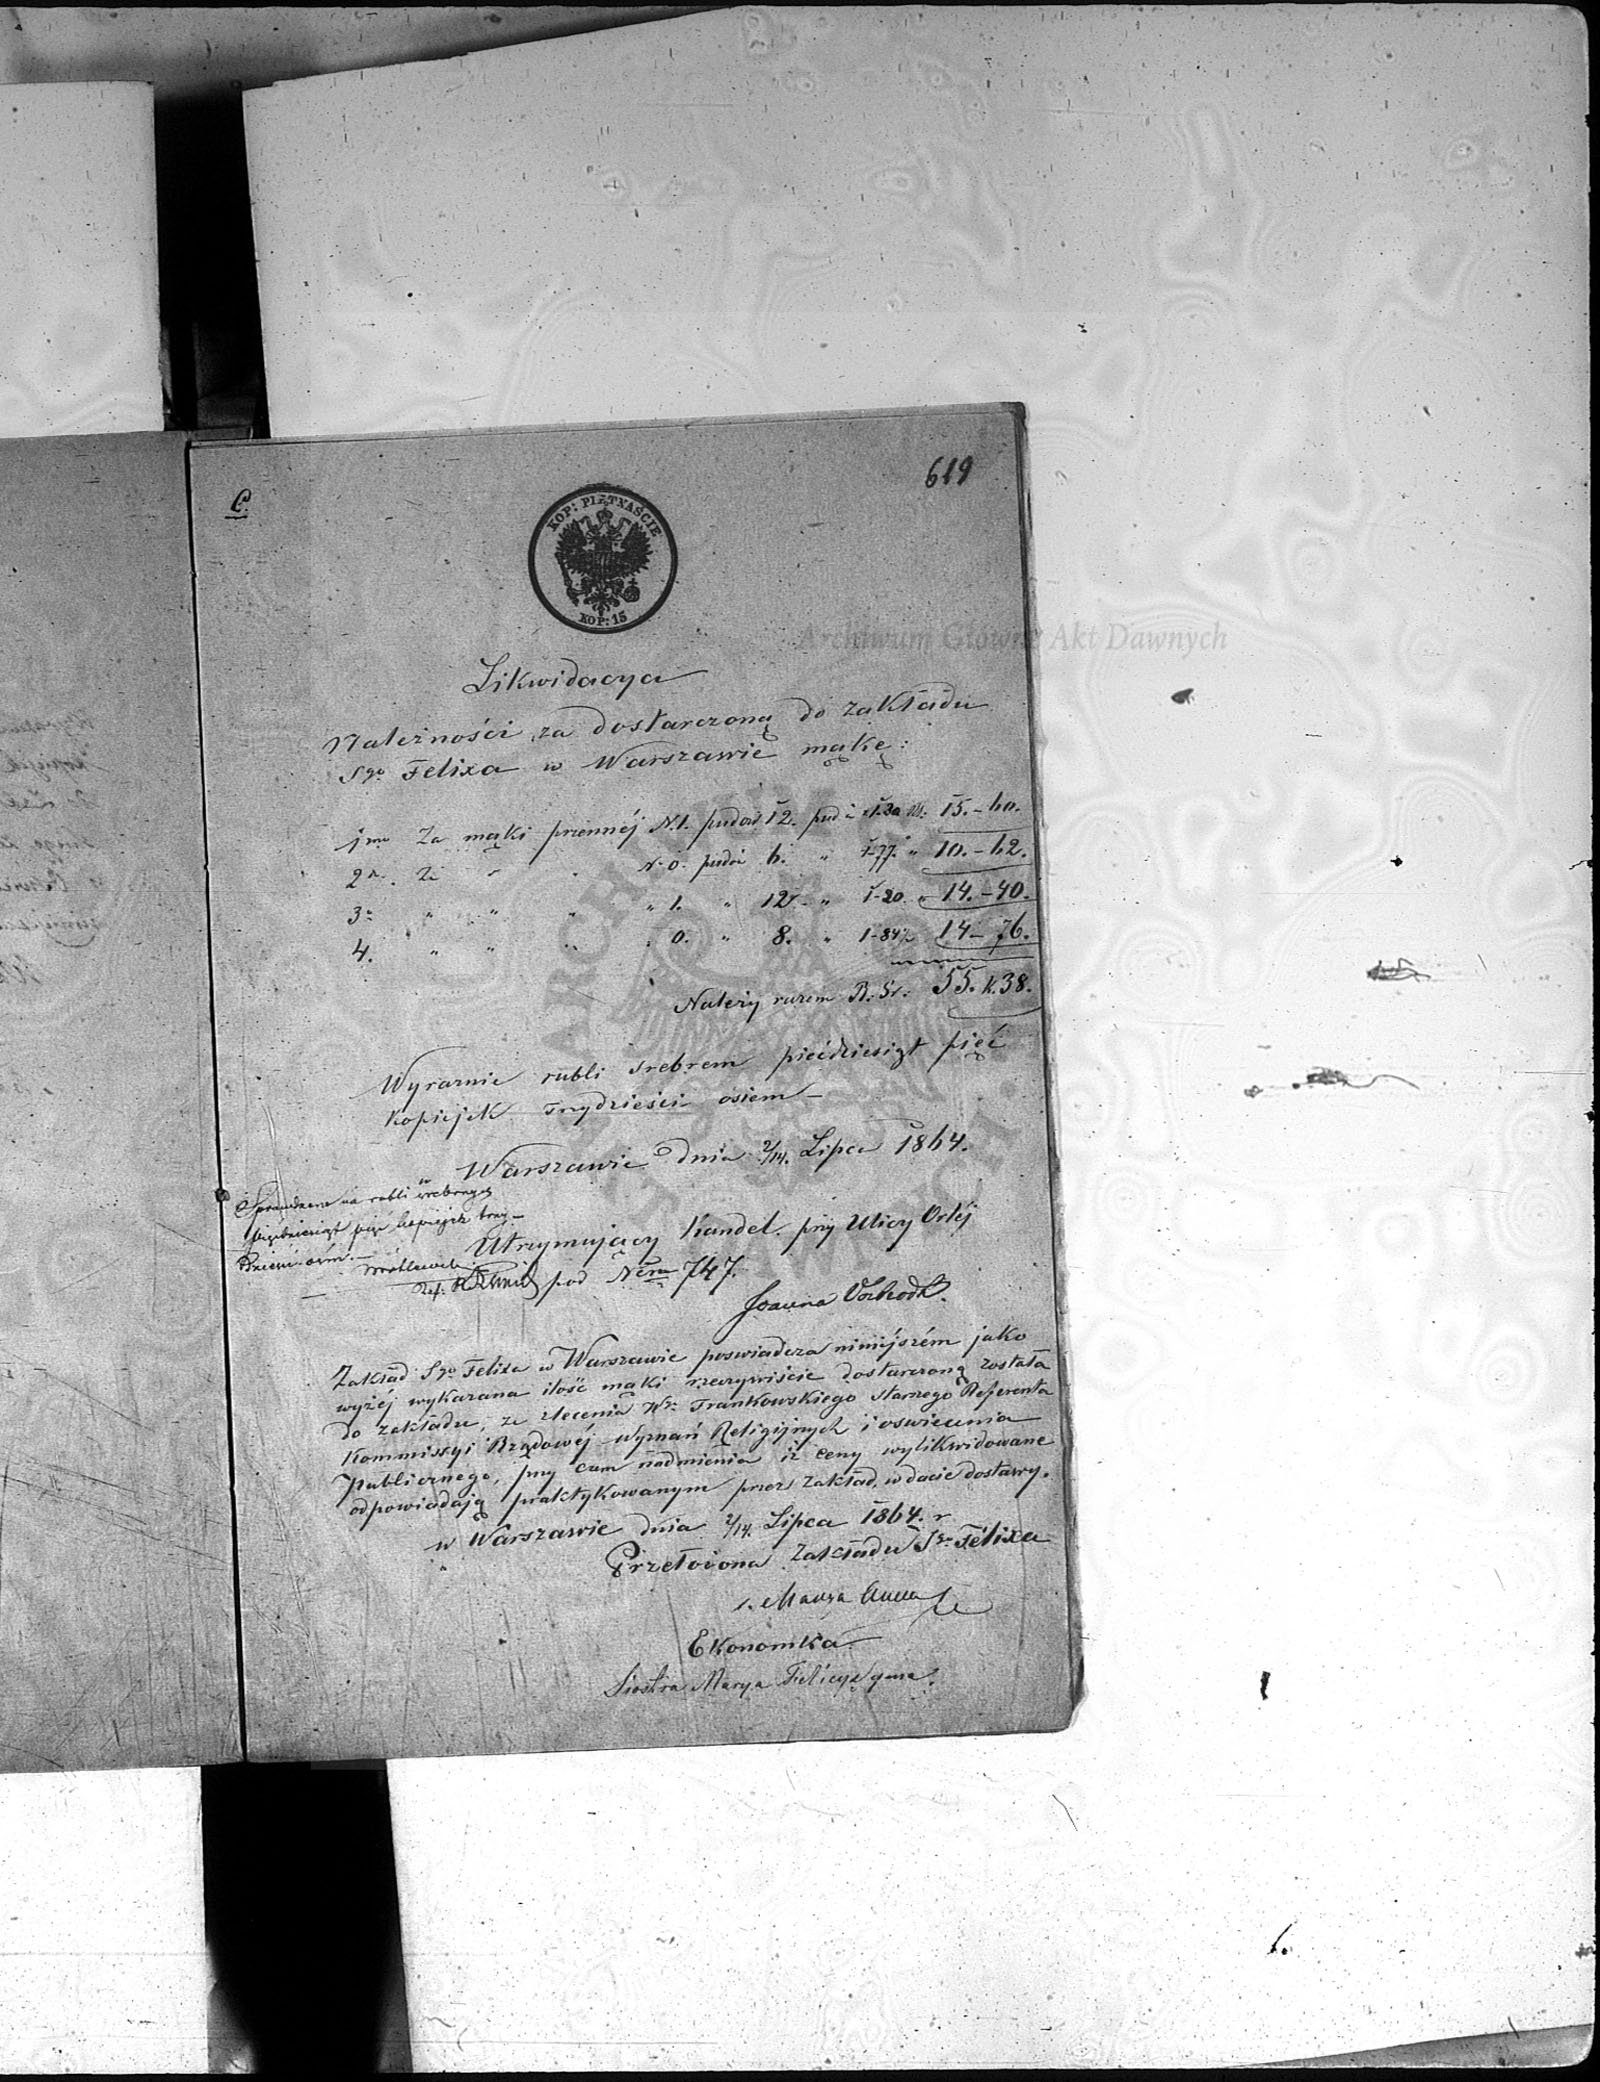 619
C.
KOP: PIĘTNAŚCIE
KOP: 15
Archiwum Główne Akt Dawnych
Likwidacya
Należności za dostarczoną do zakładu
Sgo Felixa w Warszawie mąkę:
1mo Za mąki pszennéj N. 1. pudów 12. pud à 1.30 rs. 15.-60.
2o. Za " " N. 0. pudów 6. " 1-77. " 10.-62.
3o " " " " 1. " 12 - " 1-20. " 14.-40.
4. " " " " 0. " 8. " 1-84½ 14-76.
Należy razem R. Sr. 55. k. 38.
Wyraznie rubli srebrem pięćdziesiąt pięć
kopiejek trzydzieści osiem -
Warszawie dnia 2/14. Lipca 1864.
Sprawdzono na rubli srebrnych
pięćdziesiąt pięć kopiejek trzy-
dzieści ośm.
Utrzymujący handel przy Ulicy Orlej
pod Nrem 747.
Joanna
Zakład Sgo Felixa w Warszawie poswiadcza niniejszém jako
wyżéj wykazana ilość mąki rzeczywiście dostarczoną została
do zakładu, ze zlecenia Wo Frankowskiego starszego Referenta
Kommissyi Rządowéj Wyznań Religijnych i oswiecenia
Publicznego, przy czem nadmienia iż ceny wylikwidowane
odpowiadają praktykowanym przez zakład, w dacie dostawy.
w Warszawie dnia 2/14. Lipca 1864. r
Przełożona Zakładu Sgo Félixa
s. Marya Anna
Ekonomka
Siostra Marya Felicya